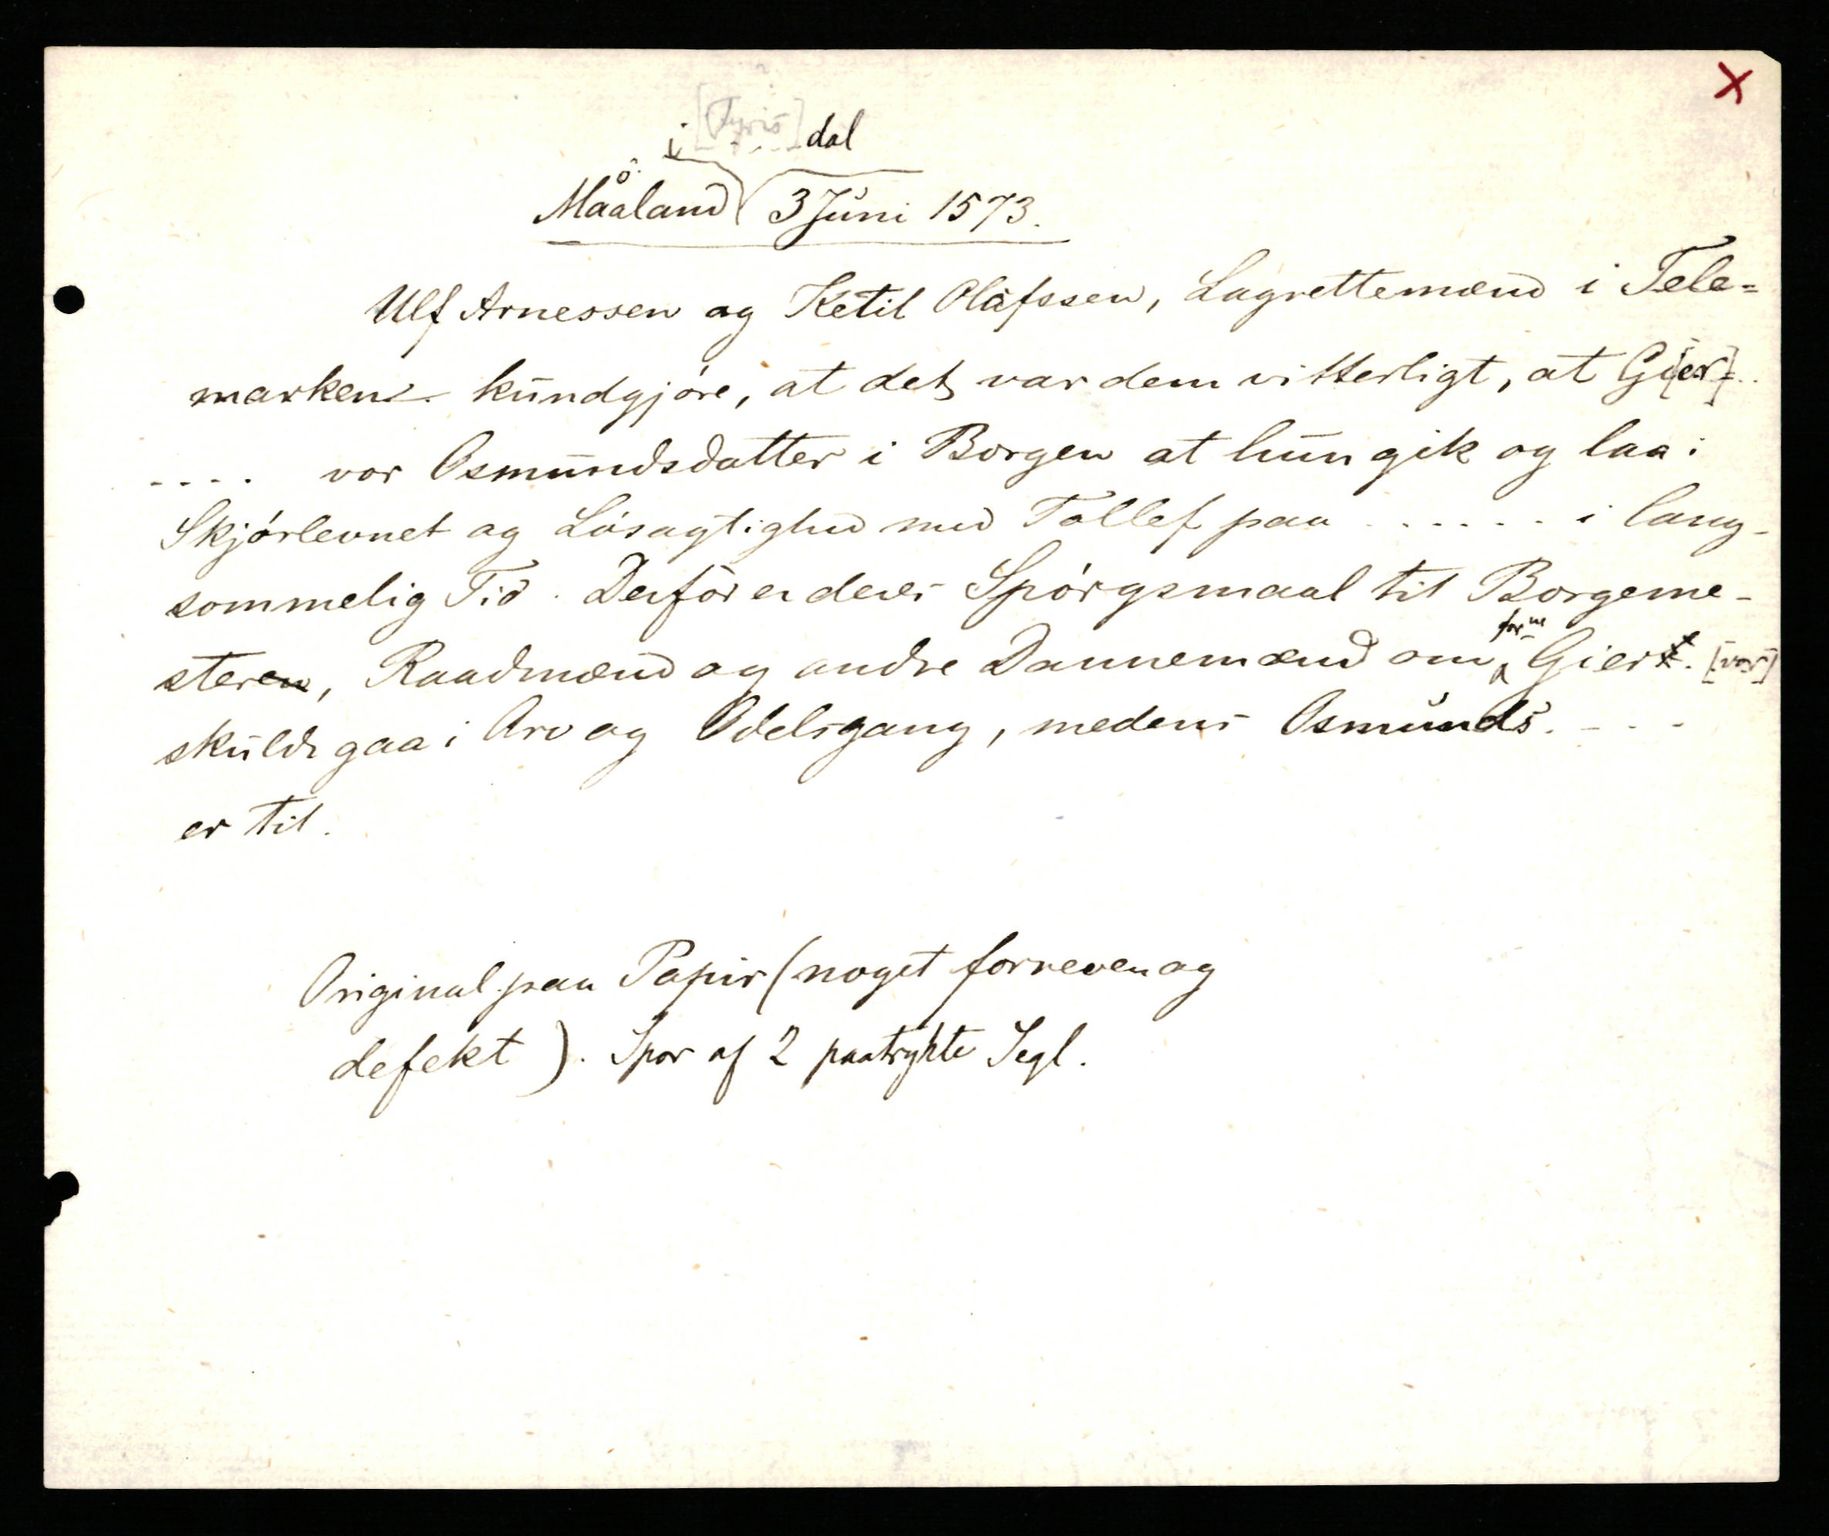 X
i [Tyris] dal
?
Måaland 3 Juni 1573.
Ulf Arnessen og Ketil Olafssen, Lagrettemænd i Tele=
marken kundgjøre, at det var dem vitterligt, at Gi[er]..
.... vor Osmundsdatter i Borgen at hun gik og laa i
Skjørlevnet og Løsagtighed med Tollef paa ...... i lang-
sommelig Tid. Derfor er deres Spørgsmaal til Borgeme-
steren, Raadmænd og andre Dannemænd om form Gier. [vor]
skulde gaa i Arv og Odelsgang, medens Osmunds. - - -
er til.
Original paa Papir (noget forreven og
defekt). Spor af 2 paatrykte Segl.